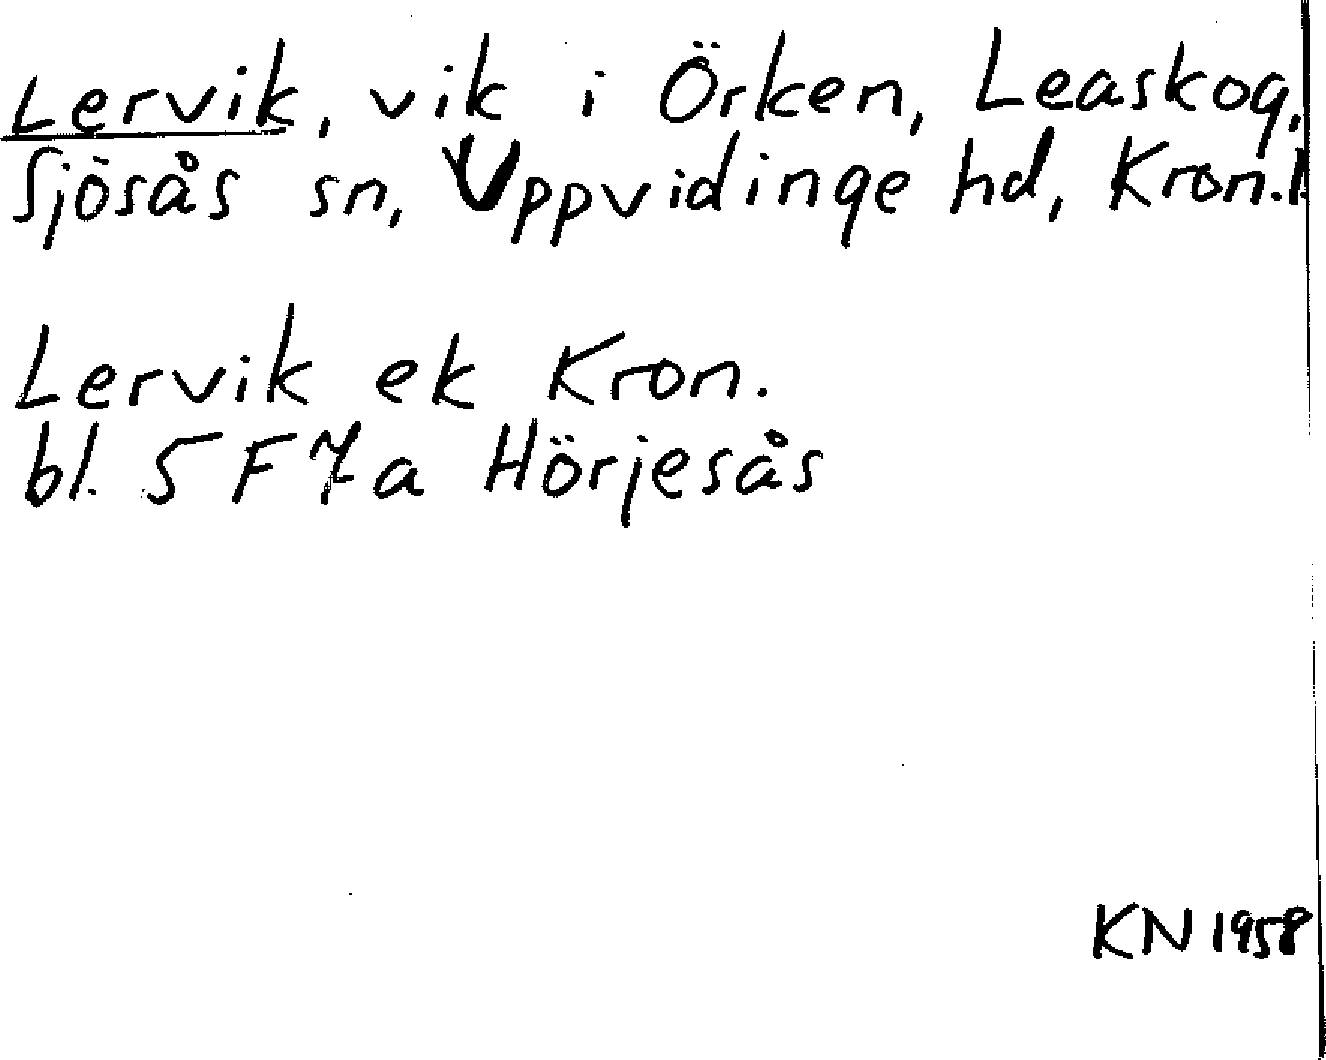 Lervik, vik i Örken, Leaskog,
Sjösås sn, Uppvidinge hd, Kron.l.
Lervik ek Kron.
bl. 5 F 7 a Hörjesås
KN 1958